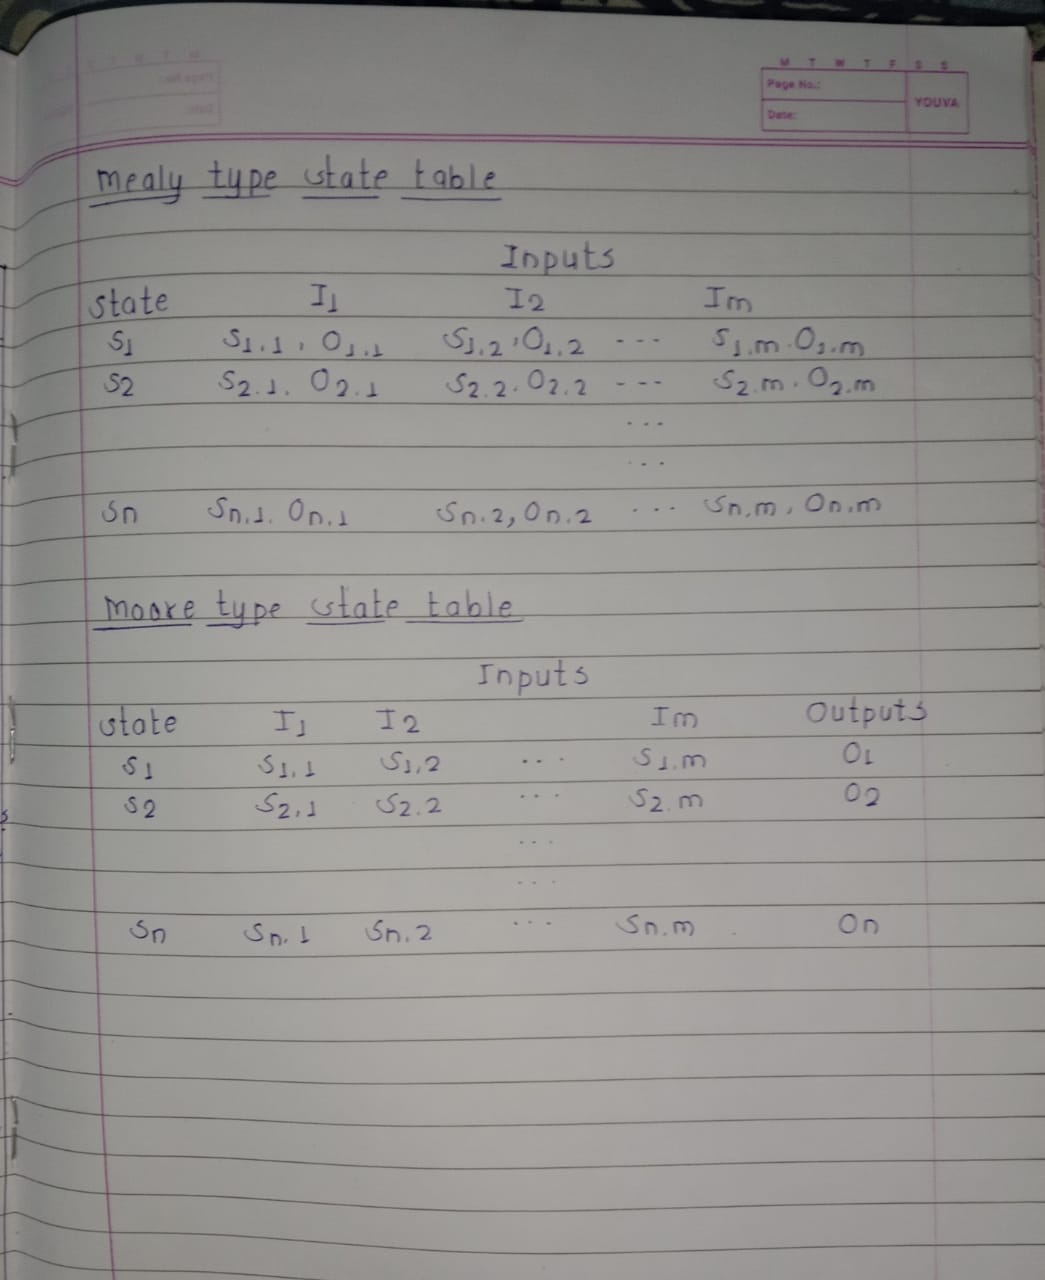 M T W T F S S
Page No.:
YOUVA
Date:
mealy type state table
Inputs
state I1 I2 Im
S1 S1.1, O1.1 S1,2,O1,2 --- S1,m.O1.m
S2 S2.1. O2.1 S2.2.O2.2 --- S2.m.O2.m
...
...
Sn Sn,1. On,1 Sn.2,On.2 ... Sn,m, On.m
moore type state table
Inputs
state I1 I2 Im Outputs
S1 S1,1 S1,2 ... S1.m O1
S2 S2,1 S2.2 ... S2.m O2
...
...
Sn Sn.1 Sn.2 ... Sn.m On